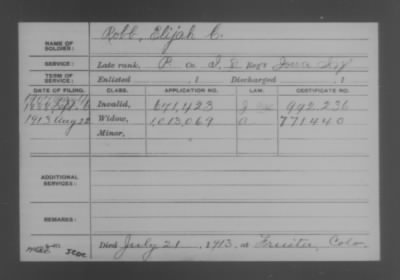 Robb, Elijah C.
NAME OF SOLDIER:
SERVICE: Late rank, P. Co. I, 5 Reg't Iowa Inf
TERM OF SERVICE: Enlisted , 1 Discharged , 1
DATE OF FILING. CLASS. APPLICATION NO. LAW. CERTIFICATE NO.
Invalid, 671,423 992.236
1913 Aug 22 Widow, 1,013,069 a 771440
Minor,
ADDITIONAL SERVICES:
REMARKS:
Died July 21, 1913, at Fruita, Colo.